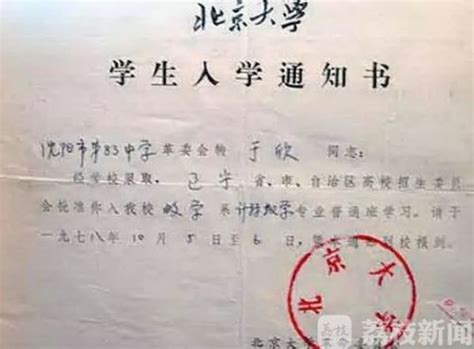 北京大学
学生入学通知书
沈阳市第83中学革委会转 于欣 同志:
经学校录取, 辽宁省、市、自治区高校招生委员
会批准你入我校数学系计算数学专业普通班学习。请于
一九七八年10月5日至6日,凭本通知到校报到。
北京大
北京大学
荔枝
荔枝新闻